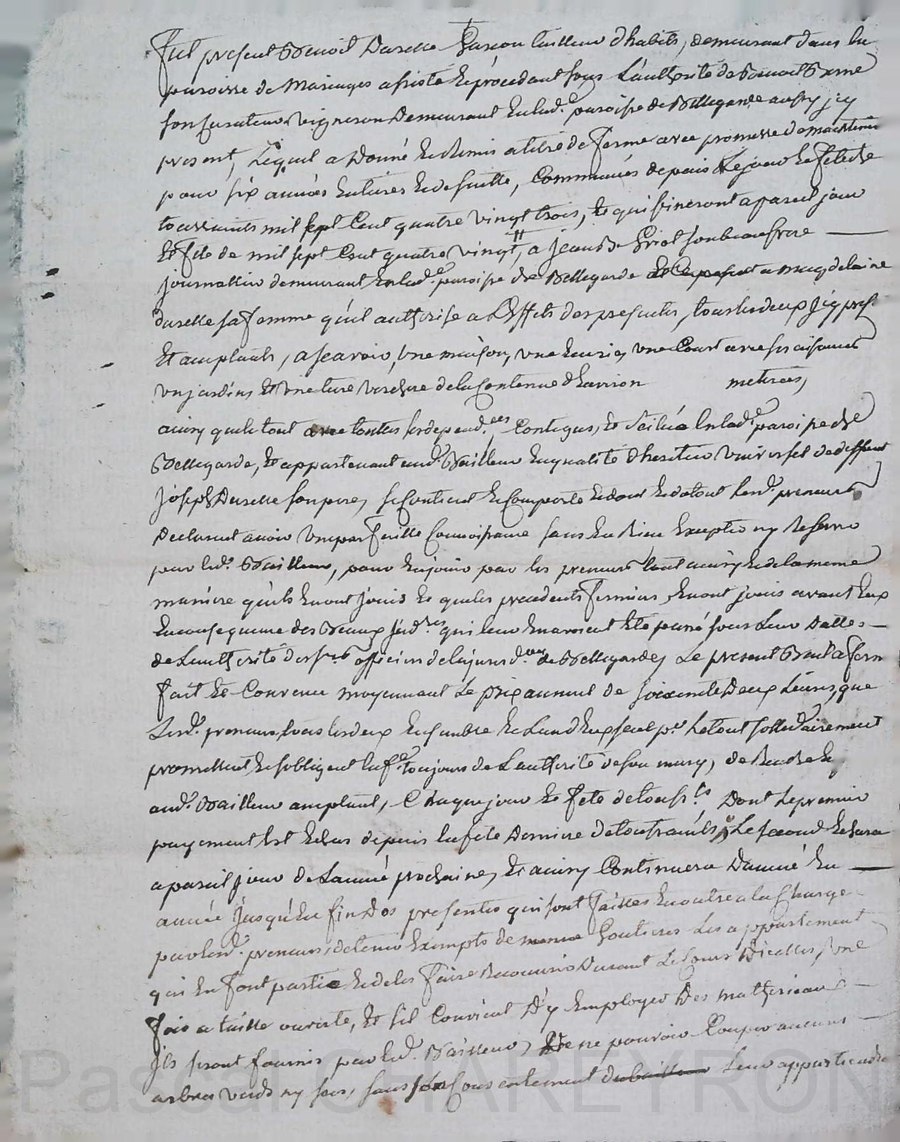 fut présent Benoit Durelle Garçon tailleur d'habits, demeurant dans la
paroisse de Maringes assisté et procédant sous l'authorité de Benoit
son curateur vigneron demeurant en lad.e paroisse de Bellegarde aussy icy
present, Lequel a Donné et Remis a titre de ferme avec promesse de maintenir
pour six années entieres et de suitte, Commencées depuis le jour et fete de
toussaints mil sept Cent quatre vingt trois, et qui finiront a pareil jour
et fete de mil sept Cent quatre vingt, a jean Griot son beaufrere
journallier demeurant en lad.e paroisse de Bellegarde et magdelaine
durelle sa femme qu'il authorise a l'Effet des presentes, tous les deux icy pres.
Et acceptants, a scavoir, une maison, une Ecurie, une Court avec ses aisances
un jardin, et une terre verchere de la Contenue d'Environ metirées,
ainsy que le tout avec toutes ses dépend.ces Contigus, et scitué en lad.e paroisse de
Bellegarde, et appartenant aud. Bailleur en qualité d'heritier universel de deffunt
joseph Durelle son pere, se Contient et Comporte et dont et du tout lesd. preneurs
Declarent avoir une parfaitte Connoissance sans en Rien Excepter ny Reserver
par led. Bailleur, pour en jouir par les preneurs tout ainsy et de la meme
maniere qu'ils en ont jouis et que les precedents fermiers en ont jouis avant Eux
en consequence des Beaux jud.res qui leur en avoient été passé sous leur Dattes
de l'authorité des s.rs officiers de la jurisd.on de Bellegarde, Le present Bail a ferme
fait et Convenu moyennant Le prix annuel de soixente Deux Livres, que
Lesd. preneurs, tous les deux Ensemble et l'un d'Eux seul p.r le tout sollidairement
promettent et s'obligent la f.e toujours de l'authorité de son mary, de Rendre et
aud. Bailleur acceptant, Chaque jour et fete de touss.ts Dont le premier
payement Est Echus depuis la fete Derniere de toussaints, Le second Echera
a pareil jour de L'année prochaine, et ainsy Continuera D'année En
année jusqu'En fin Des presentes qui sont faittes En outre a la Charge
par lesd. preneurs, de tenir Exempts de Goutieres Les appartement
qui En font partie et de les faire Recouvrir Durant Le Cours D'icelles, une
fois a taille ouverte, Et s'il Convient D'y Employer Des matheriaux
ils seront fournis par led. Bailleur, de ne pouvoir Couper aucuns
arbres verds ny secs, sans son Consentement du bailleur Leur appartiendra
Pascal CHAREYRON